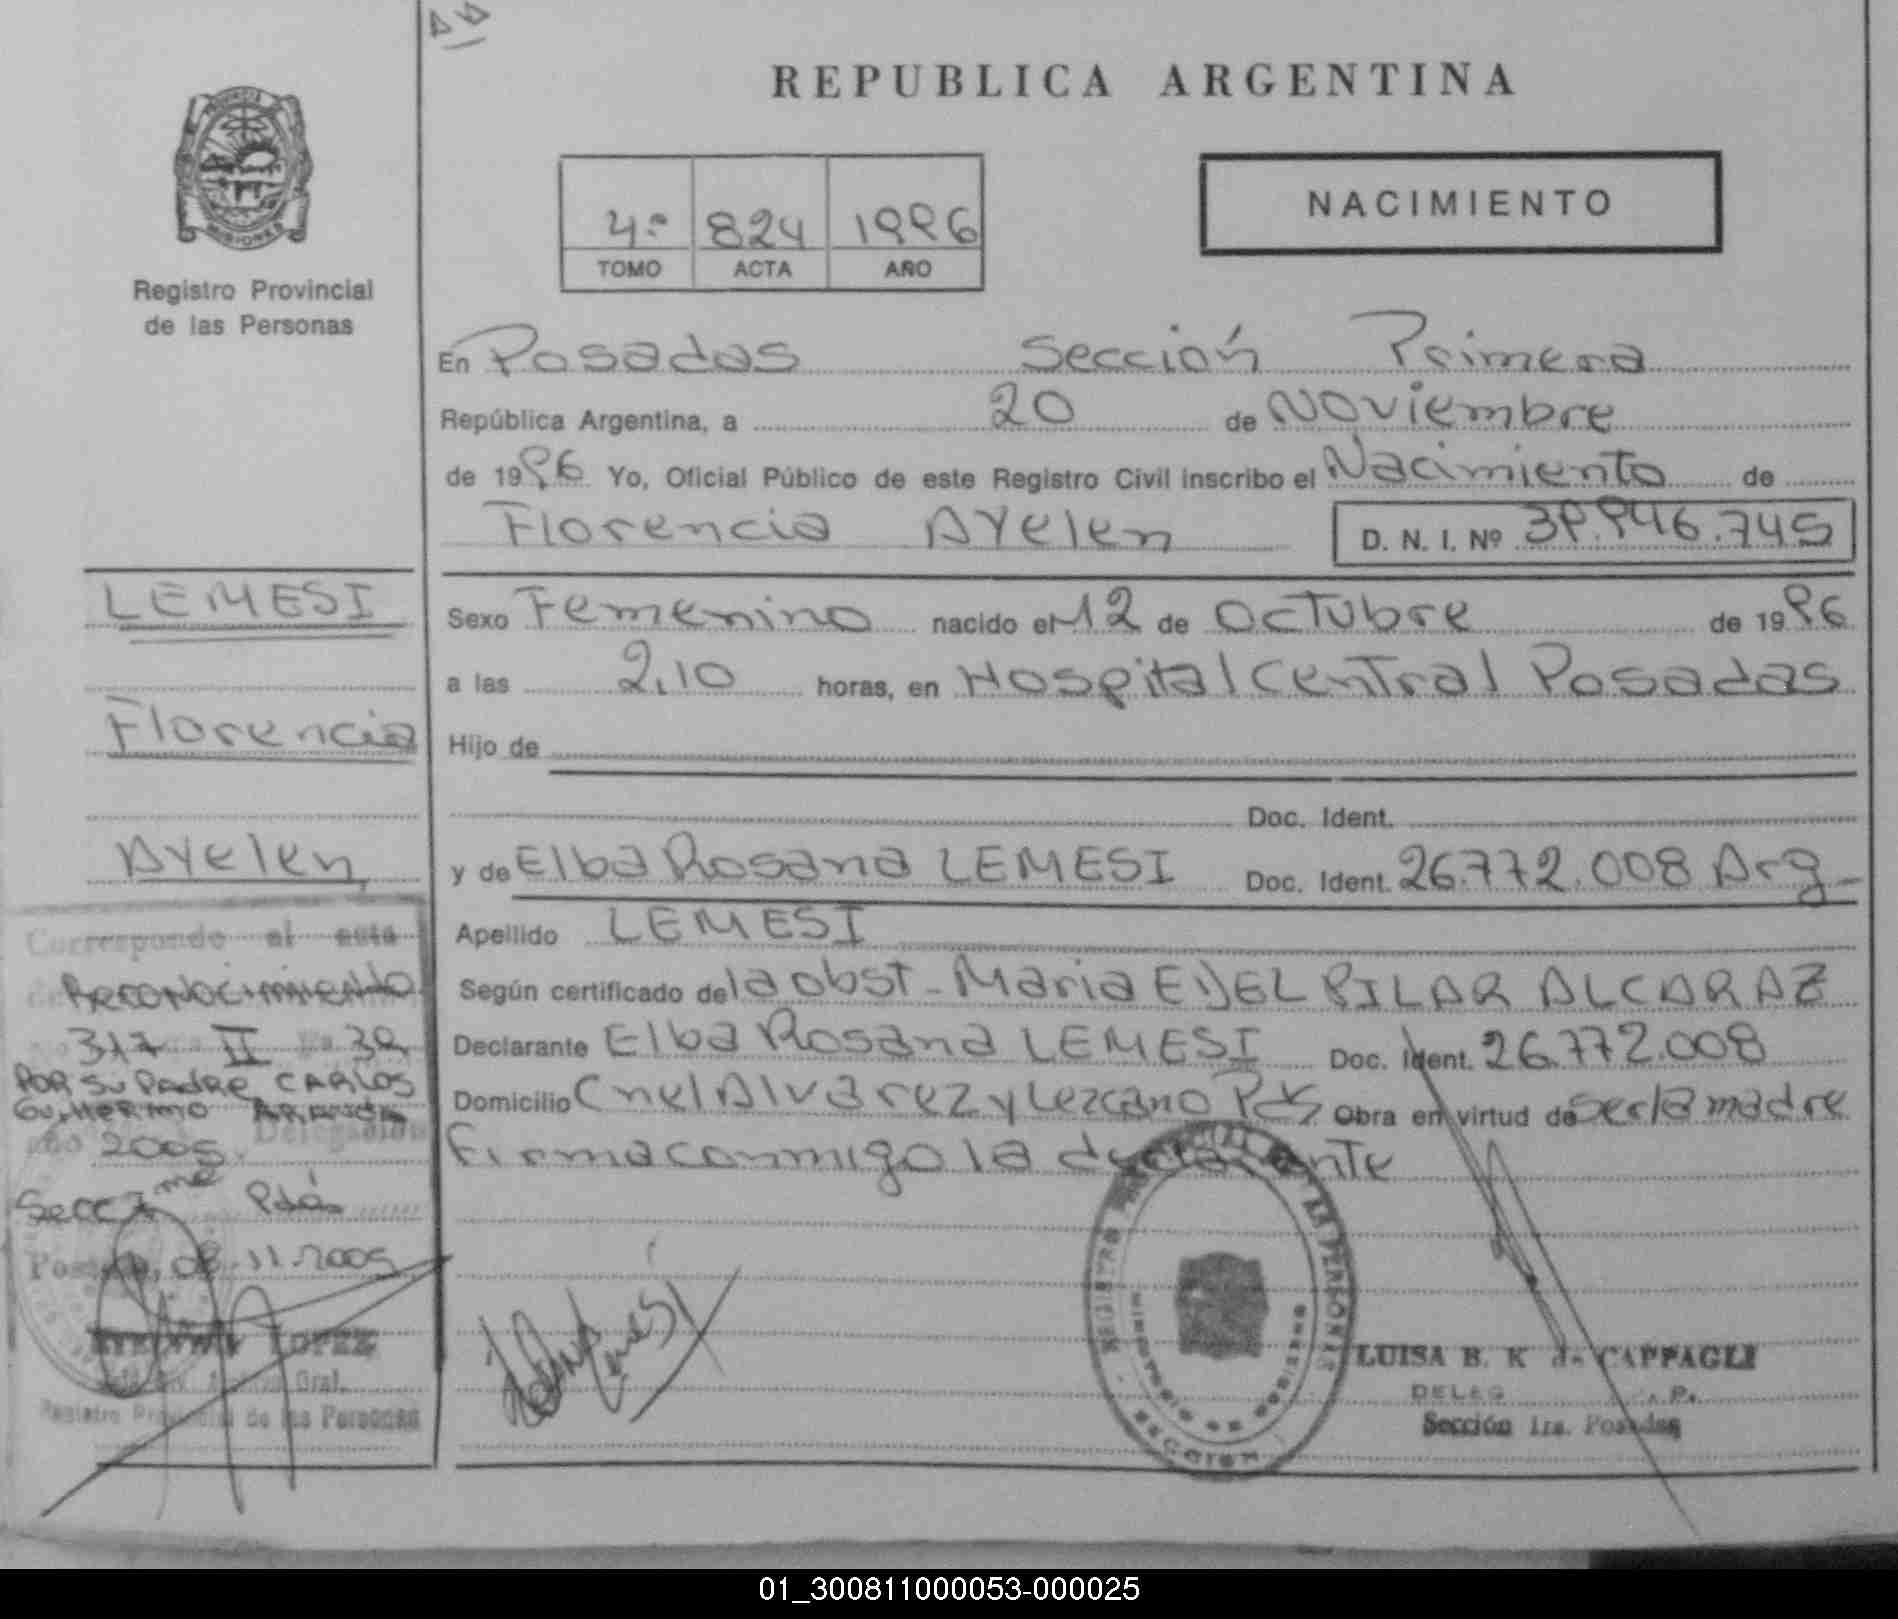 REPUBLICA ARGENTINA
PROVINCIA
MISIONES
Registro Provincial
de las Personas
4º 824 1996
TOMO ACTA AÑO
NACIMIENTO
En Posadas Sección Primera
República Argentina, a 20 de Noviembre
de 1996 Yo, Oficial Público de este Registro Civil inscribo el Nacimiento de
Florencia Ayelen D. N. I. Nº 39.946.745
Sexo Femenino nacido el 12 de Octubre de 1996
a las 2,10 horas, en Hospital Central Posadas
Hijo de
Doc. Ident.
y de Elba Rosana LEMESI Doc. Ident. 26.772.008 Arg
Apellido LEMESI
Según certificado de la obst. Maria E. DEL PILAR ALCARAZ
Declarante Elba Rosana LEMESI Doc. Ident. 26.772.008
Domicilio Cnel Alvarez y Lezcano Pds Obra en virtud de ser la madre
Firma conmigo la declarante
LEMESI
Florencia
Ayelen
Corresponde al acta
de Reconocimiento
317 II 39
POR SU PADRE CARLOS
GUILLERMO ARANDA
año 2005. Delegación
Secc 1 Pdas
Posadas, 08.11.2005
LOPEZ
Registro Provincial de las Personas
LUISA B. K de CAPPAGLI
DELEG
Sección 1ra. Posadas
01_300811000053-000025